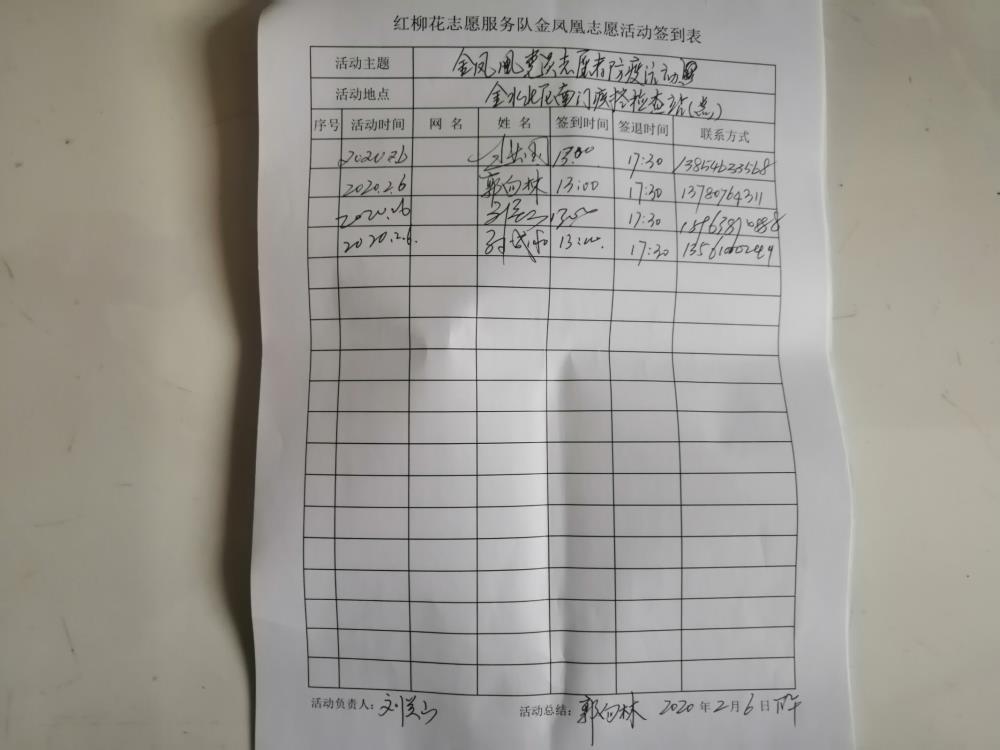 红柳花志愿服务队金凤凰志愿活动签到表
活动主题 金凤凰党员志愿者防疫活动
活动地点 金水北区南门疫控检查站(点)
序号 活动时间 网名 姓名 签到时间 签退时间 联系方式
2020.2.6 13:00 17:30 13854623568
2020.2.6 郭向林 13:00 17:30 13780764311
2020.2.6 13:00 17:30
2020.2.6. 13:00. 17:30
活动负责人: 活动总结: 郭向林 2020年2月6日